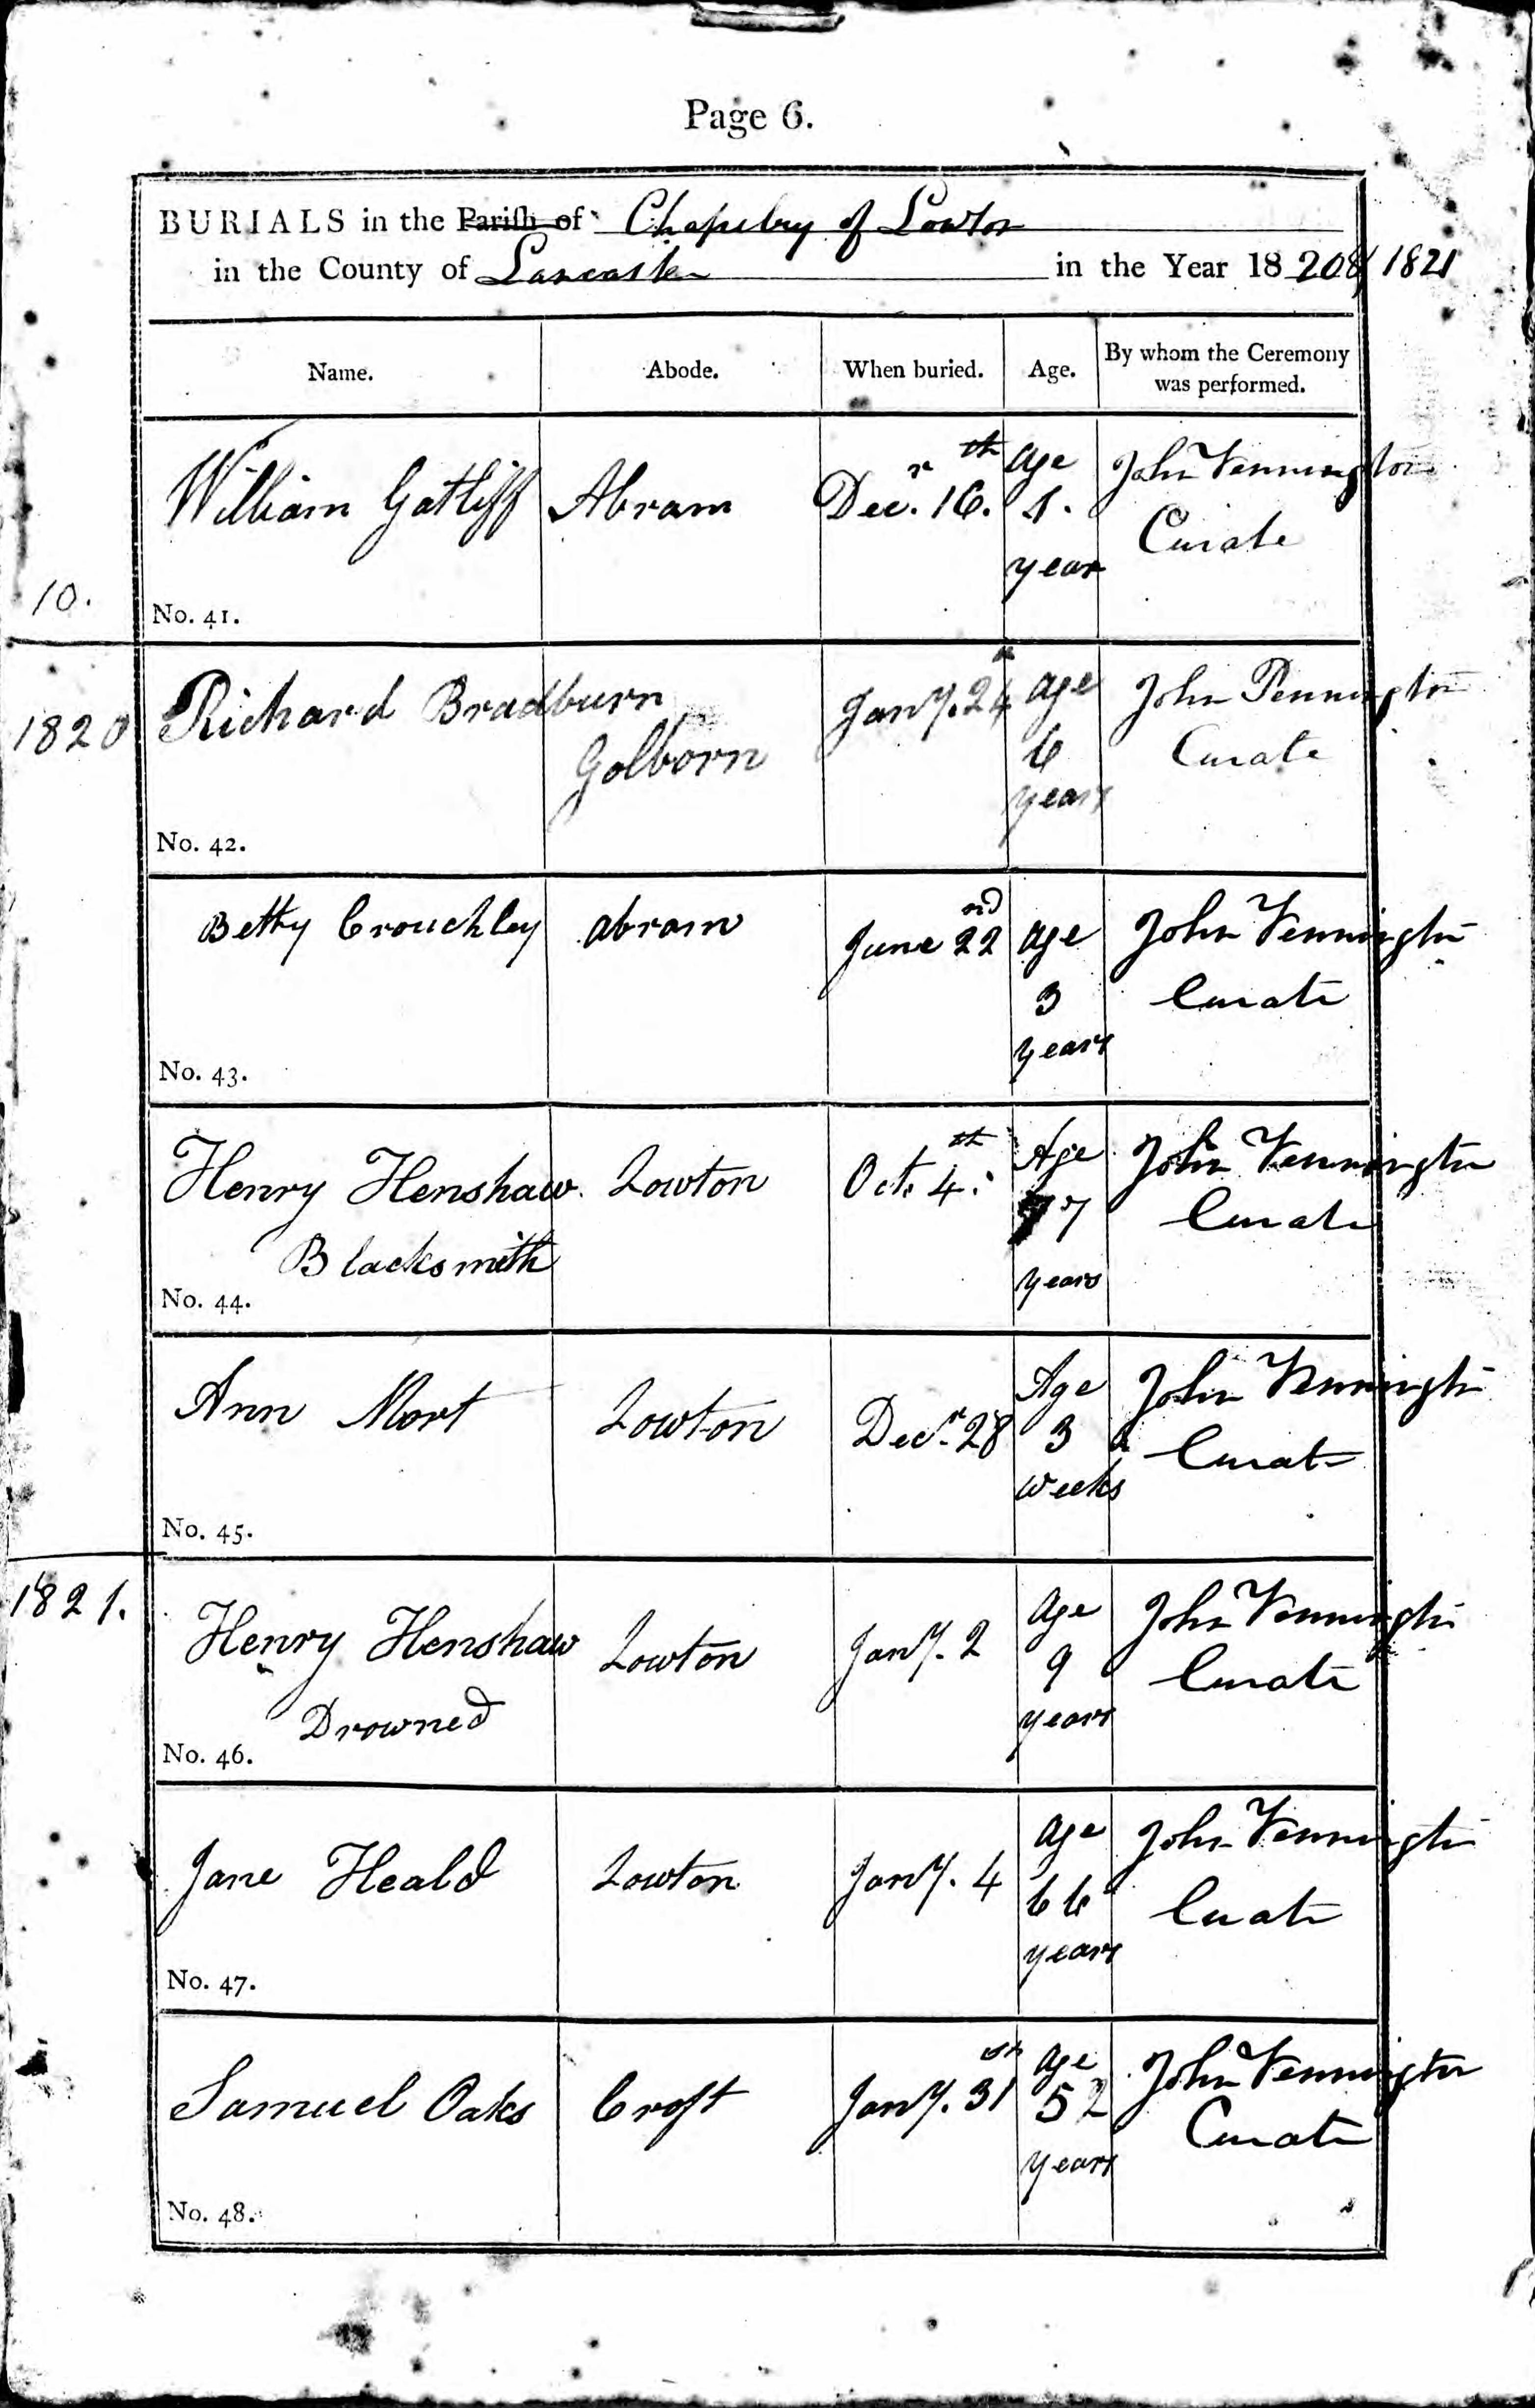 Page 6.
BURIALS in the Parish of Chapelry of Lowton
in the County of Lancaster in the Year 18 20 & 1821
Name. Abode. When buried. Age. By whom the Ceremony was performed.
William Gatliff Abram Decr. 16th. age 1. year John Pennington Curate
10.
No. 41.
1820 Richard Bradburn Golborn Jany. 24 age 6 years John Pennington Curate
No. 42.
Betty Crouchley abram June 22nd age 3 years John Pennington Curate
No. 43.
Henry Henshaw. Lowton Oct. 4th. Age 77 years John Pennington Curate
Blacksmith
No. 44.
Ann Mort Lowton Decr. 28 Age 3 weeks John Pennington Curate
No. 45.
1821.
Henry Henshaw Lowton Jany. 2 age 9 years John Pennington Curate
Drowned
No. 46.
Jane Heald Lowton Jany. 4 age 66 years John Pennington Curate
No. 47.
Samuel Oaks Croft Jany. 31 age 52 years John Pennington Curate
No. 48.